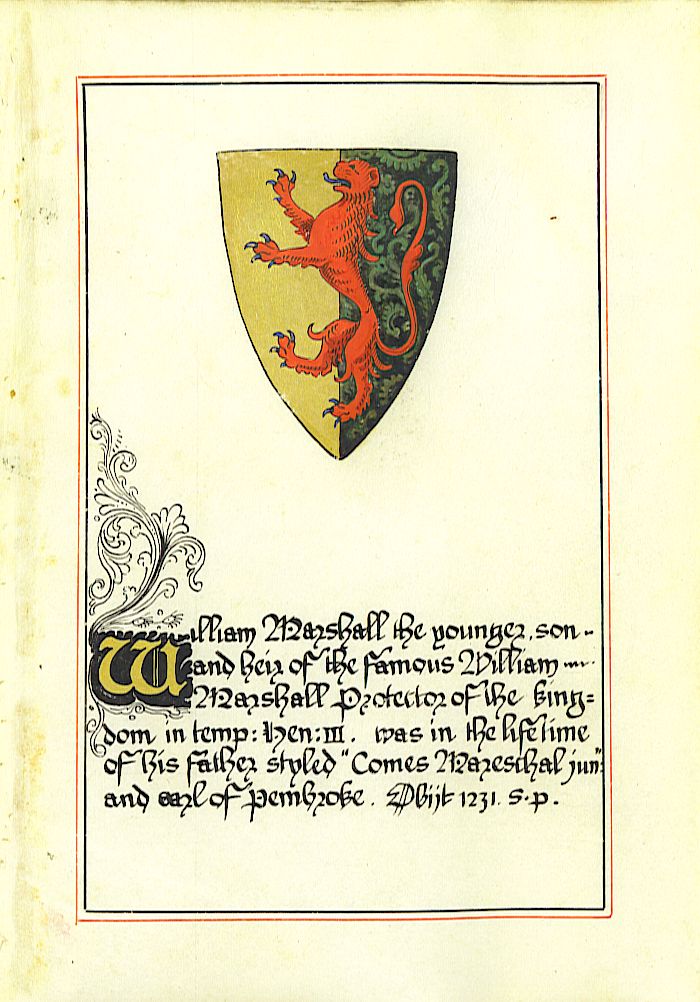 William Marshall the younger, son -
and heir of the famous William
Marshall Protector of the King=
dom in temp: Hen: III. was in the lifetime
of his father styled "Comes Mareschal jun":
and earl of Pembroke. Obijt 1231. s.p.